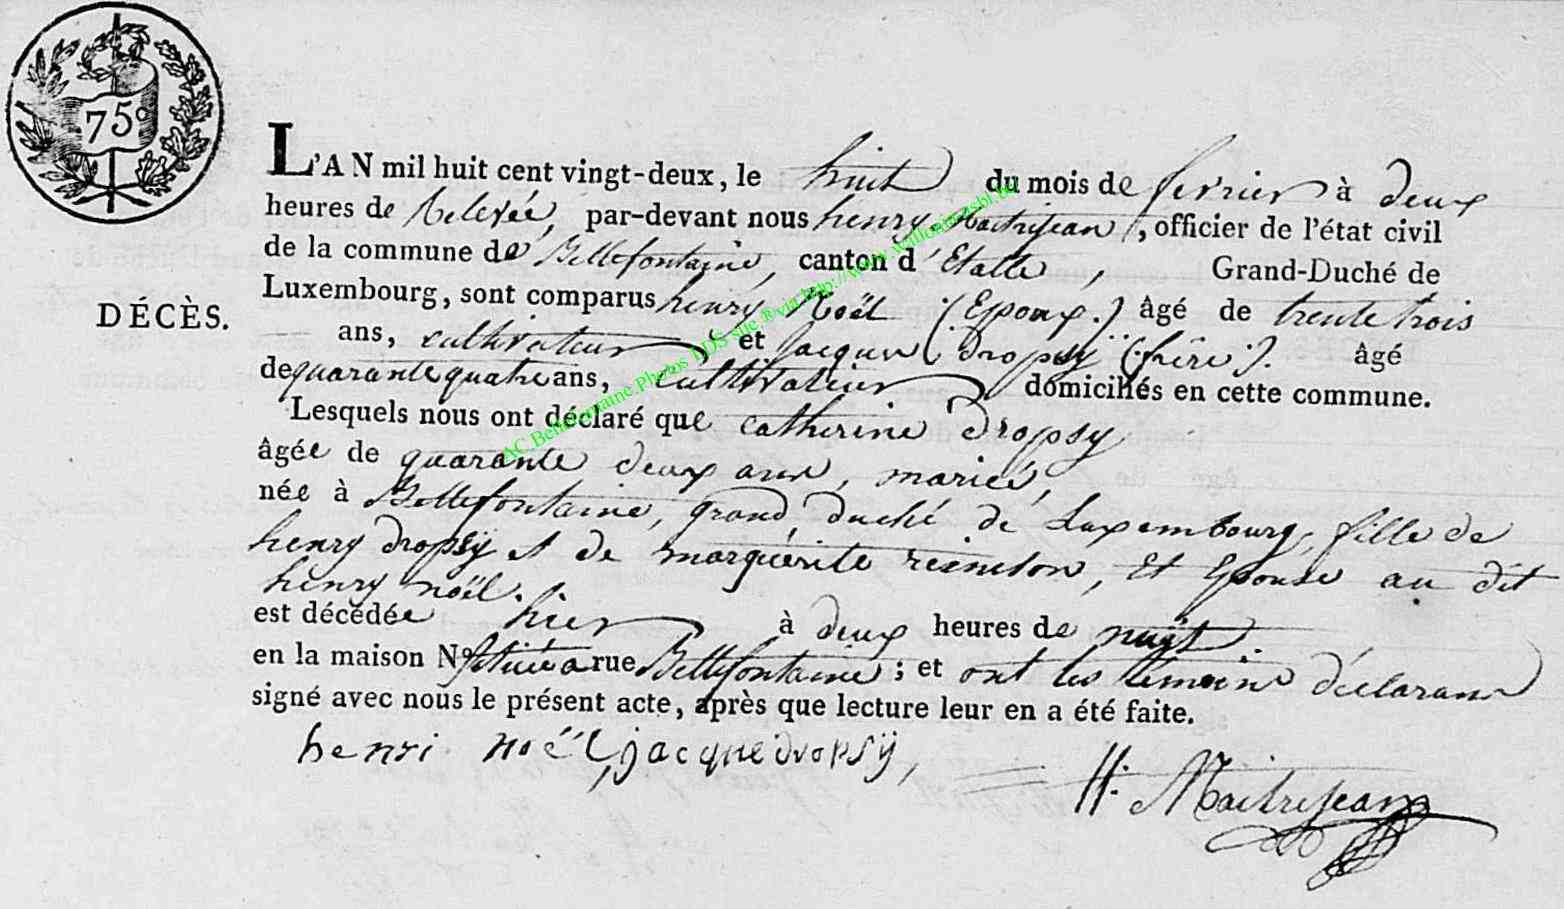 75c
L'AN mil huit cent vingt-deux, le huit du mois de fevrier à deux
heures de relevée, par-devant nous henry Maitrejean, officier de l'état civil
de la commune de Bellefontaine, canton d'Etalle, Grand-Duché de
Luxembourg, sont comparus henry Noël (Epoux.) âgé de trente trois
DÉCÈS.
ans, cultivateur et Jacques Dropsy (frère). âgé
de quarante quatre ans, cultivateur domiciliés en cette commune.
Lesquels nous ont déclaré que catherine Dropsy
âgée de quarante deux ans, mariée,
née à Bellefontaine, grand duché de Luxembourg, fille de
henry dropsÿ et de marguerite, et Epouse au dit
henry noël.
est décédée hier à deux heures de nuit.
en la maison No située a rue Bellefontaine; et ont les témoins déclarans
signé avec nous le présent acte, après que lecture leur en a été faite.
henri noël, jacque dropsÿ,
H. Maitrejean
AC Bellefontaine.Photos LDS suc.®via http://www.